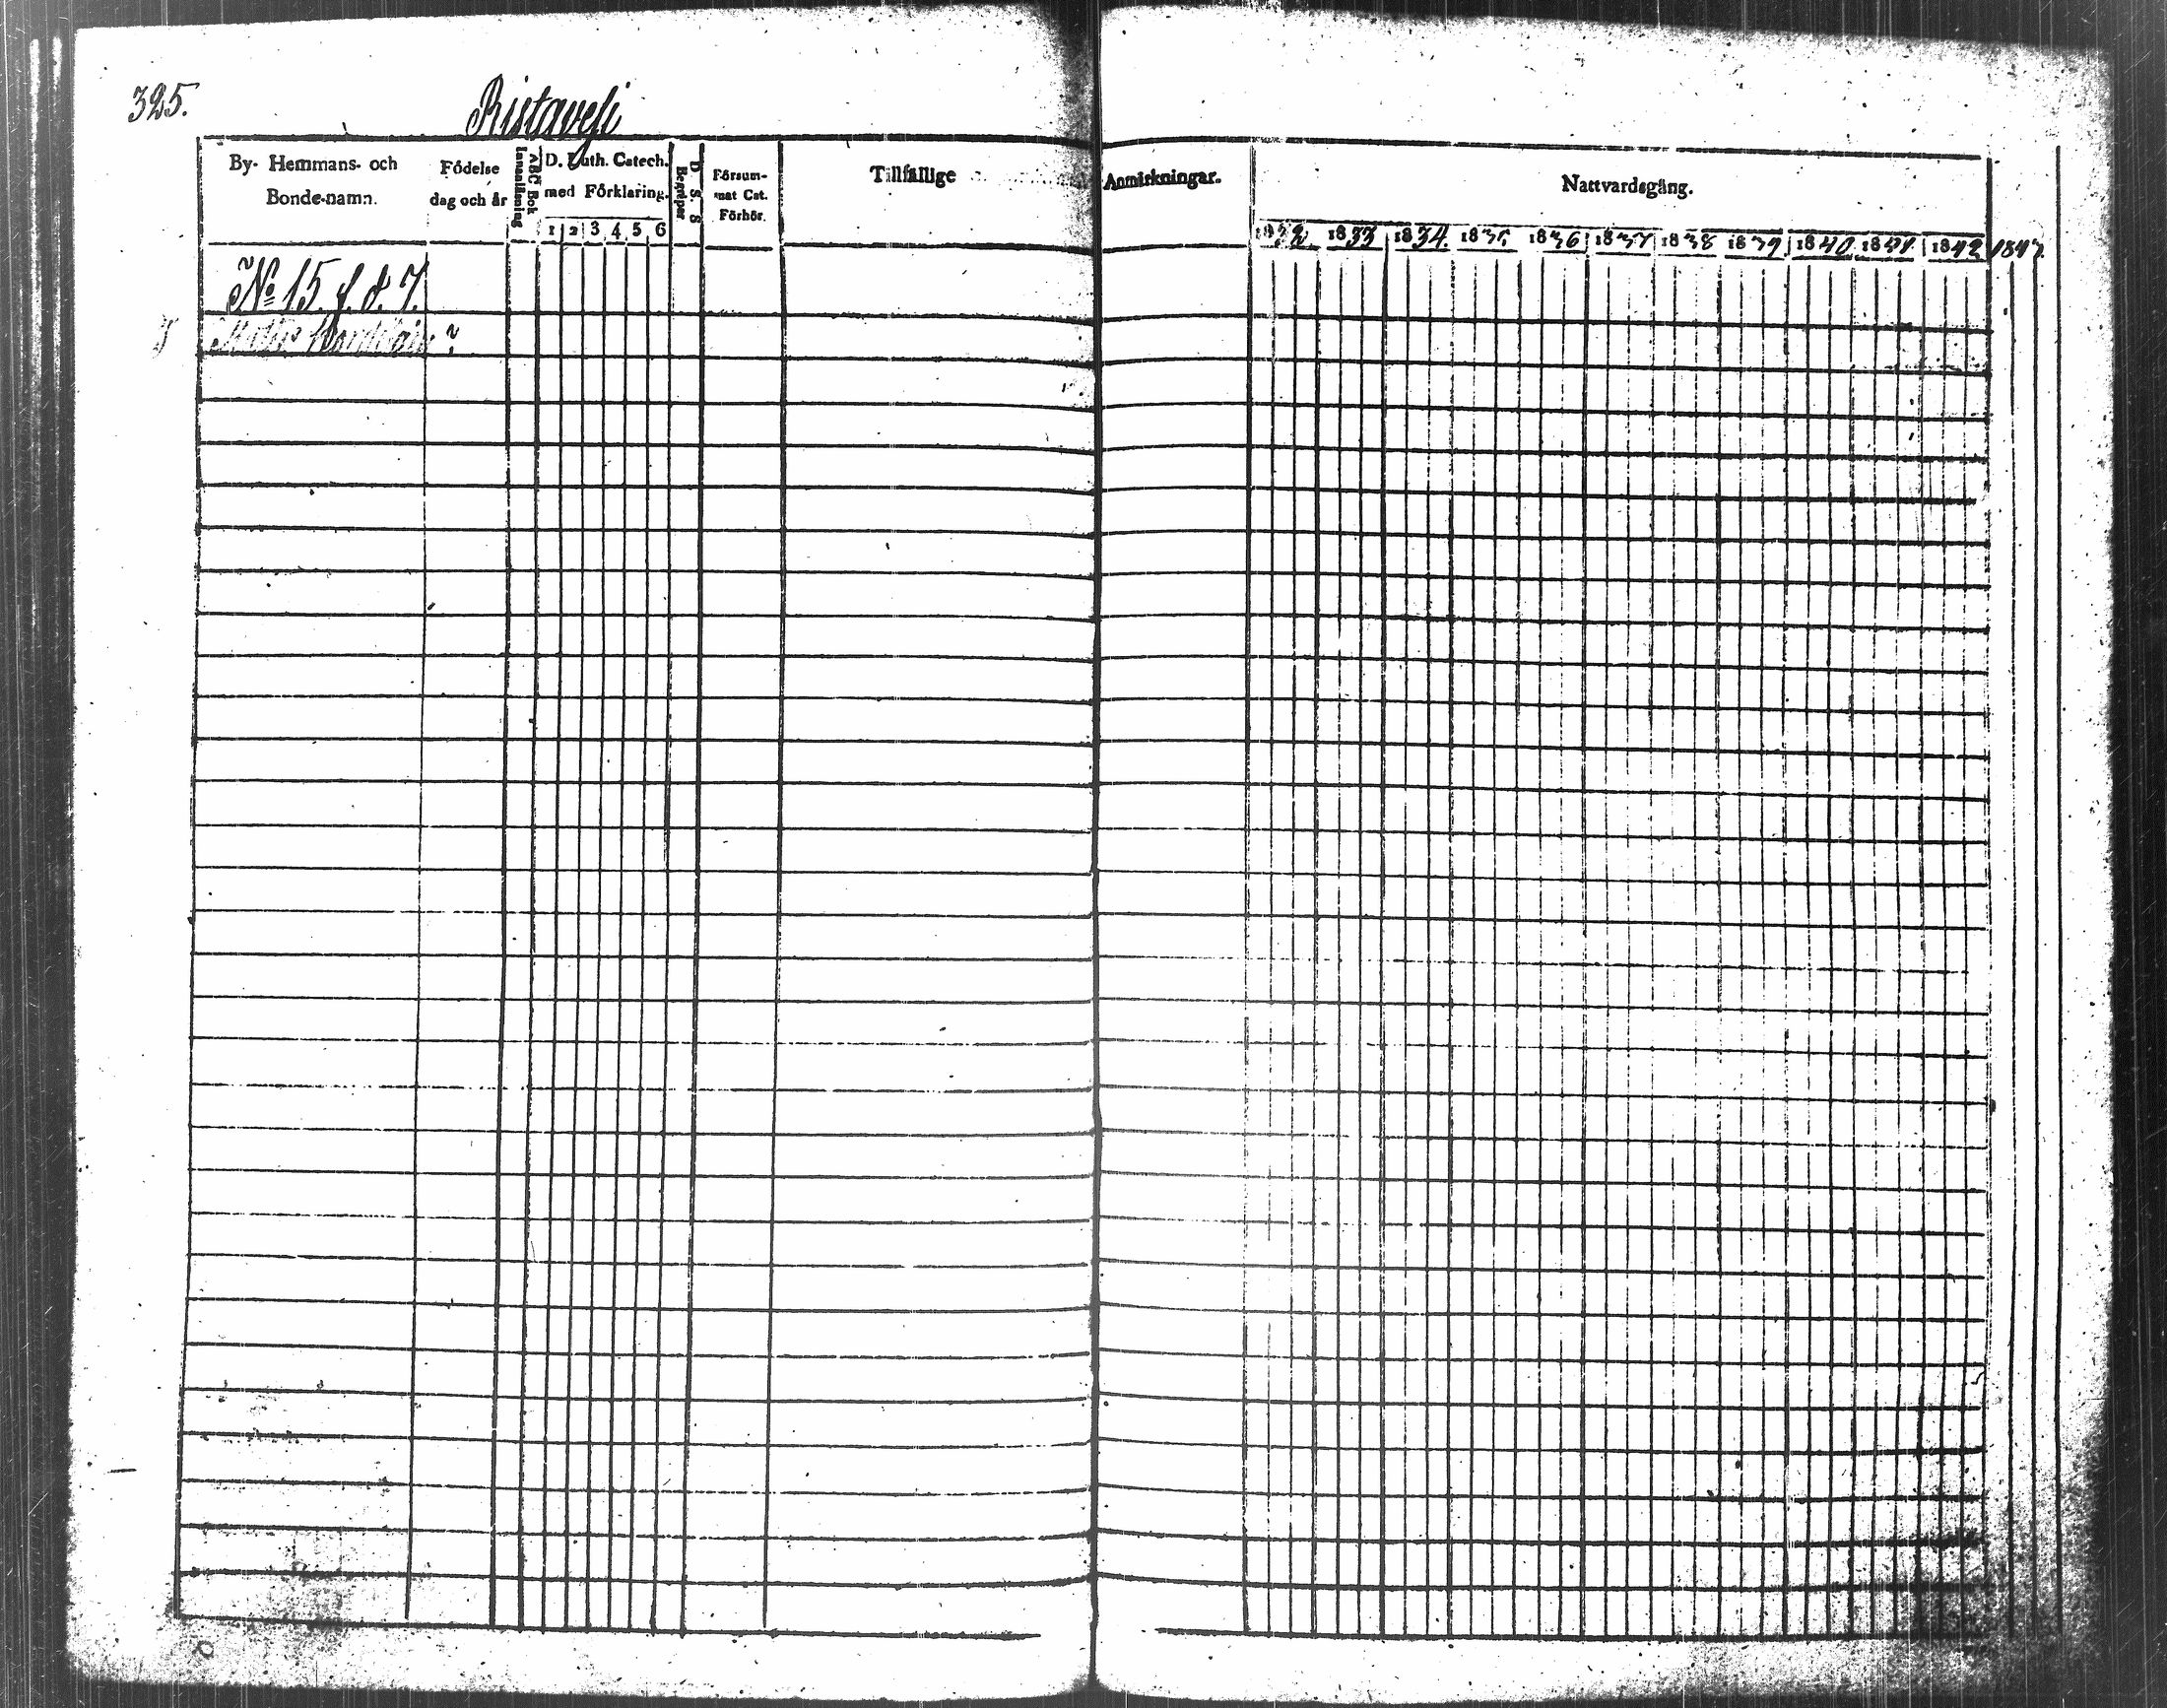 325.
Ristavesi
By- Hemmans- och Bonde-namn.
Födelse dag och år
ABC Bok Innanläsning
D. Luth. Catech. med Förklaring.
1 2 3 4 5 6
D. S. S Begriper
Försummat Cat. Förhör.
Tillfällige Anmärkningar.
Nattvardsgång.
1832 1833 1834. 1835 1836 1837 1838 1839 1840 1841 1842 1843.
№ 15. f. d. 7.